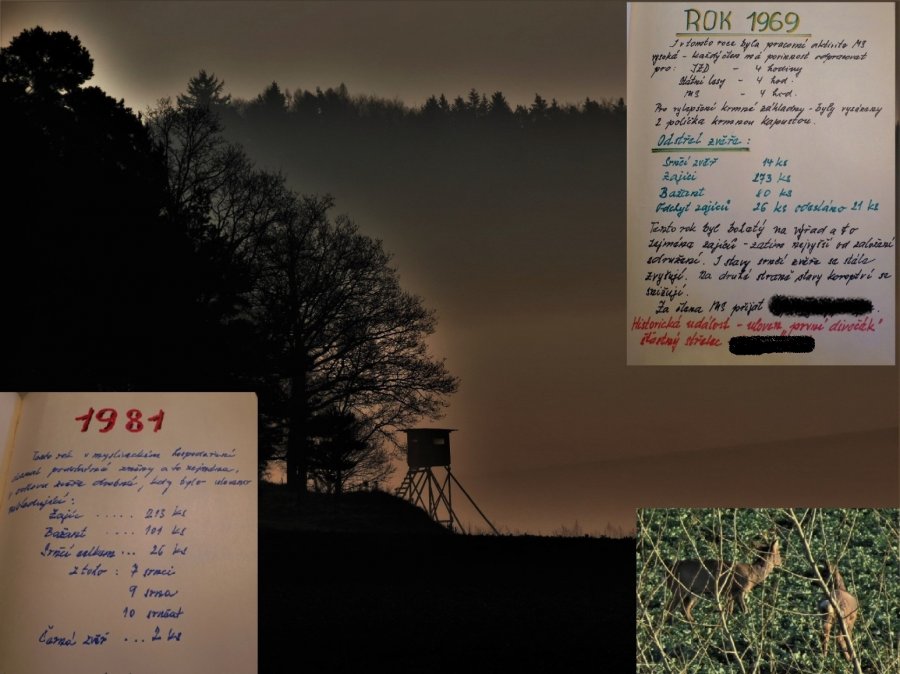 ROK 1969
I v tomto roce byla pracovní aktivita MS
vysoká - každý člen má povinnost odpracovat
pro: JZD - 4 hodiny
Státní lesy - 4 hod.
MS - 4 hod.
Pro vylepšení krmné základny - byly vysázeny
2 políčka krmnou kapustou.
Odstřel zvěře:
Srnčí zvěř 14 ks
Zajíci 273 ks
Bažanti 80 ks
Odchyt zajíců 26 ks odesláno 21 ks
Tento rok byl bohatý na výřad a to
zejména zajíců - zatím nejvyšší od založení
sdružení. I stavy srnčí zvěře se stále
zvyšují. Na druhé straně stavy koroptví se
snižují.
Za člena MS přijat
Historická událost - uloven "první divočák"
šťastný střelec
1981
Tento rok v mysliveckém hospodaření
doznal podstatné změny a to zejména,
v odlovu zvěře drobné, kdy bylo uloveno
následující:
Zajíc ..... 213 ks
Bažant ..... 101 ks
Srnčí celkem ... 26 ks
z toho : 7 srnci
9 srna
10 srnčat
Černá zvěř ... 2 ks